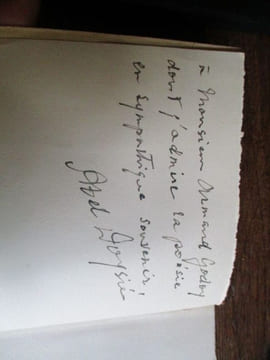 à Monsieur Armand Godoy
dont j'admire la poésie
en sympathique souvenir,
Abel Doysié